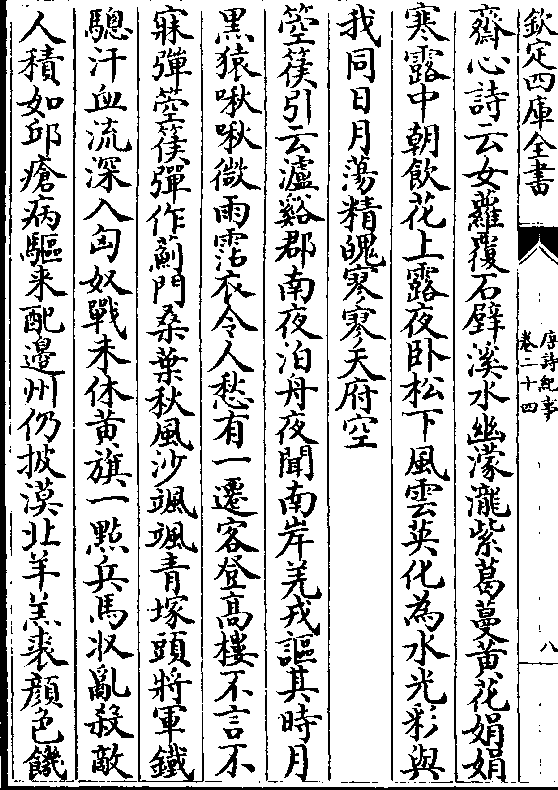 欽定四庫全書
唐詩紀事
卷二十四
八
齋心詩云女蘿覆石壁溪水幽濛瀧紫葛蔓黃花娟娟
寒露中朝飲花上露夜臥松下風雲英化為水光彩與
我同日月蕩精魄寥寥天府空
箜篌引云瀘谿郡南夜泊舟夜聞南岸羌戎謳其時月
黑猿啾啾微雨霑衣令人愁有一遷客登高樓不言不
寐彈箜篌彈作薊門桑葉秋風沙颯颯青塚頭將軍鐵
驄汗血流深入匈奴戰未休黃旗一點兵馬收亂殺敵
人積如邱瘡病驅来配邊州仍披漠北羊羔裘顔色饑